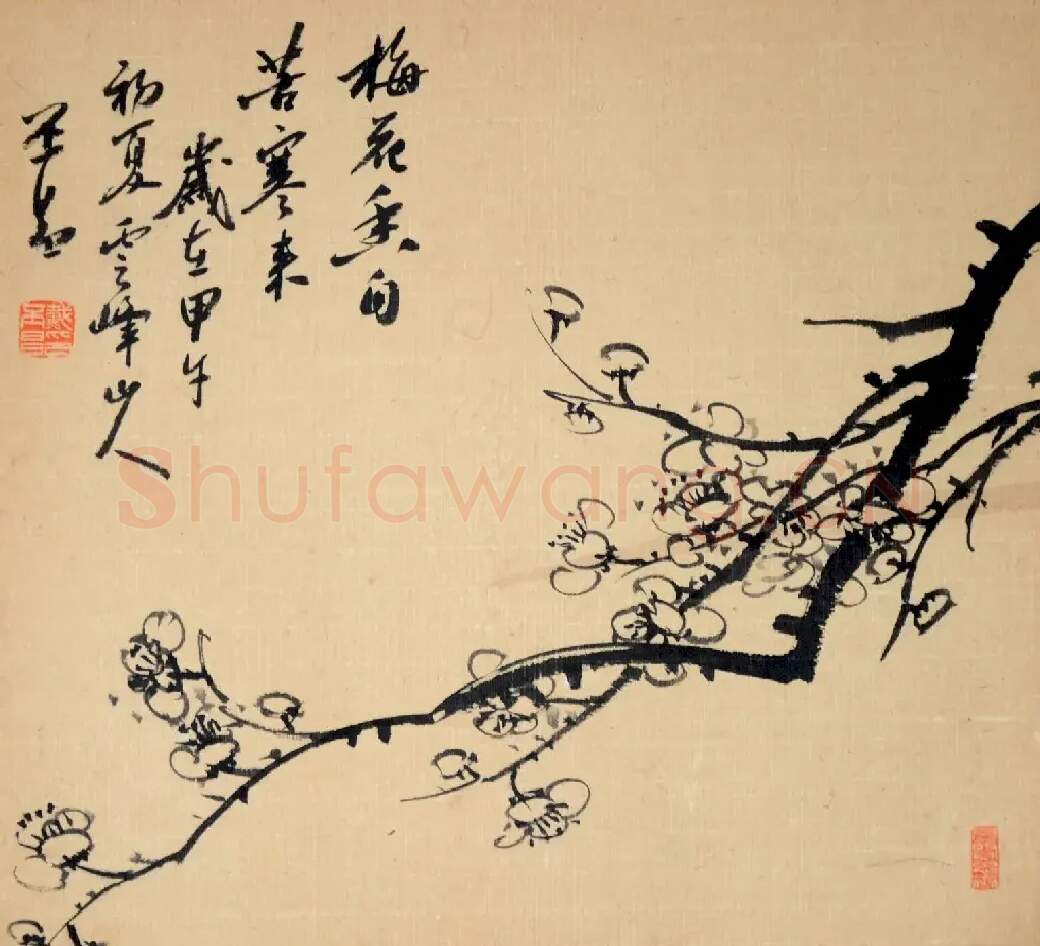 梅花香自
苦寒来
歲在甲午
初夏雲峰山人
Shufawang.cn